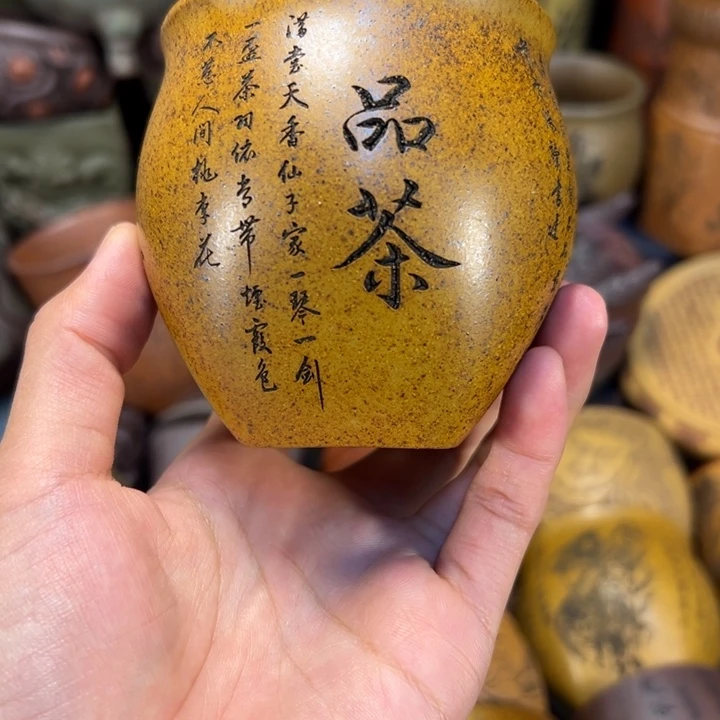 品茶
满堂天香仙子家一琴一剑
一盏茶羽依常带烟霞色
不惹人间桃李花